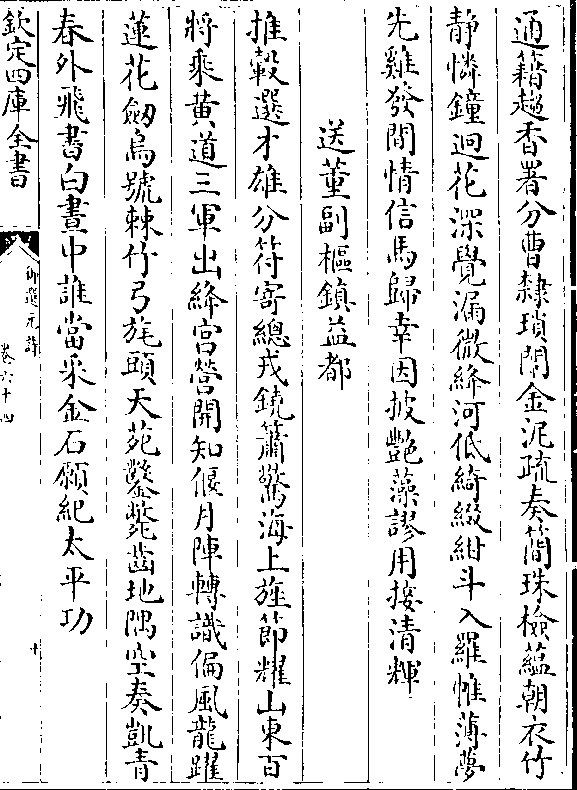 通籍趨香署分曹隸瑣闈金泥疏奏簡珠檢蘊朝衣竹
静憐鐘迥花深覺漏微絳河低綺綴紺斗入羅帷薄夢
先雞發閒情信馬歸幸因披艷藻謬用接清輝
送董副樞鎮益都
推轂選才雄分符寄總戎鐃簫驚海上旌節耀山東百
將乘黄道三軍出絳宫營開知偃月陣轉識偏風龍躍
蓮花劒烏號棘竹弓旄頭天苑鑿齒地隅空奏凱青
春外飛書白晝中誰當采金石願紀太平功
欽定四庫全書
御選元詩
卷六十四
十